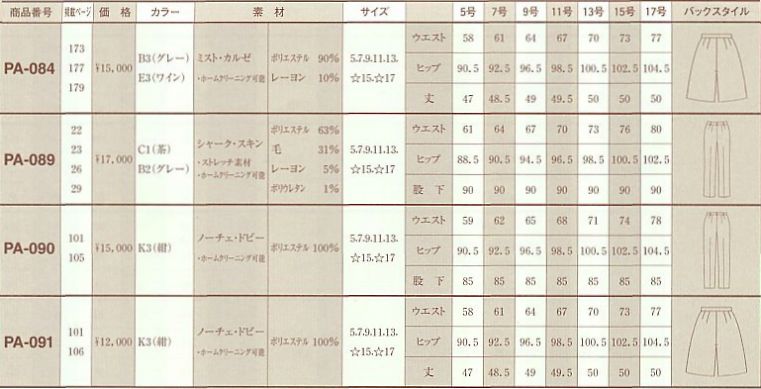 商品番号 掲載ページ 価格 カラー 素材 サイズ 5号 7号 9号 11号 13号 15号 17号 バックスタイル
PA-084 173 177 179 ¥15,000 B3(グレー) E3(ワイン) ミスト・カルゼ ・ホームクリーニング可能 ポリエステル 90% レーヨン 10% 5.7.9.11.13. ☆15.☆17
ウエスト 58 61 64 67 70 73 77
ヒップ 90.5 92.5 96.5 98.5 100.5 102.5 104.5
丈 47 48.5 49 49.5 50 50 50
PA-089 22 23 26 29 ¥17,000 C1(茶) B2(グレー) シャーク・スキン ・ストレッチ素材 ・ホームクリーニング可能 ポリエステル 63% 毛 31% レーヨン 5% ポリウレタン 1% 5.7.9.11.13. ☆15.☆17
ウエスト 61 64 67 70 73 76 80
ヒップ 88.5 90.5 94.5 96.5 98.5 100.5 102.5
股下 90 90 90 90 90 90 90
PA-090 101 105 ¥15,000 K3(紺) ノーチェ・ドビー ・ホームクリーニング可能 ポリエステル 100% 5.7.9.11.13. ☆15.☆17
ウエスト 59 62 65 68 71 74 78
ヒップ 90.5 92.5 96.5 98.5 100.5 102.5 104.5
股下 85 85 85 85 85 85 85
PA-091 101 106 ¥12,000 K3(紺) ノーチェ・ドビー ・ホームクリーニング可能 ポリエステル 100% 5.7.9.11.13. ☆15.☆17
ウエスト 58 61 64 67 70 73 77
ヒップ 90.5 92.5 96.5 98.5 100.5 102.5 104.5
丈 47 48.5 49 49.5 50 50 50